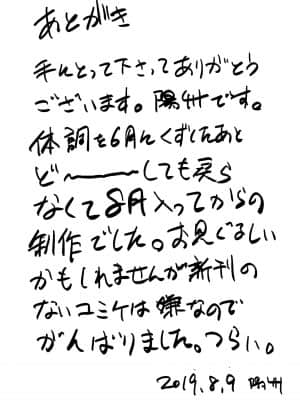 あとがき
手にとって下さってありがとう
ございます。陽州です。
体調を6月にくずしたあと
ど〜しても戻ら
なくて8月入ってからの
制作でした。お見ぐるしい
かもしれませんが新刊の
ないコミケは嫌なので
がんばりました。つらい。
2019.8.9 陽州